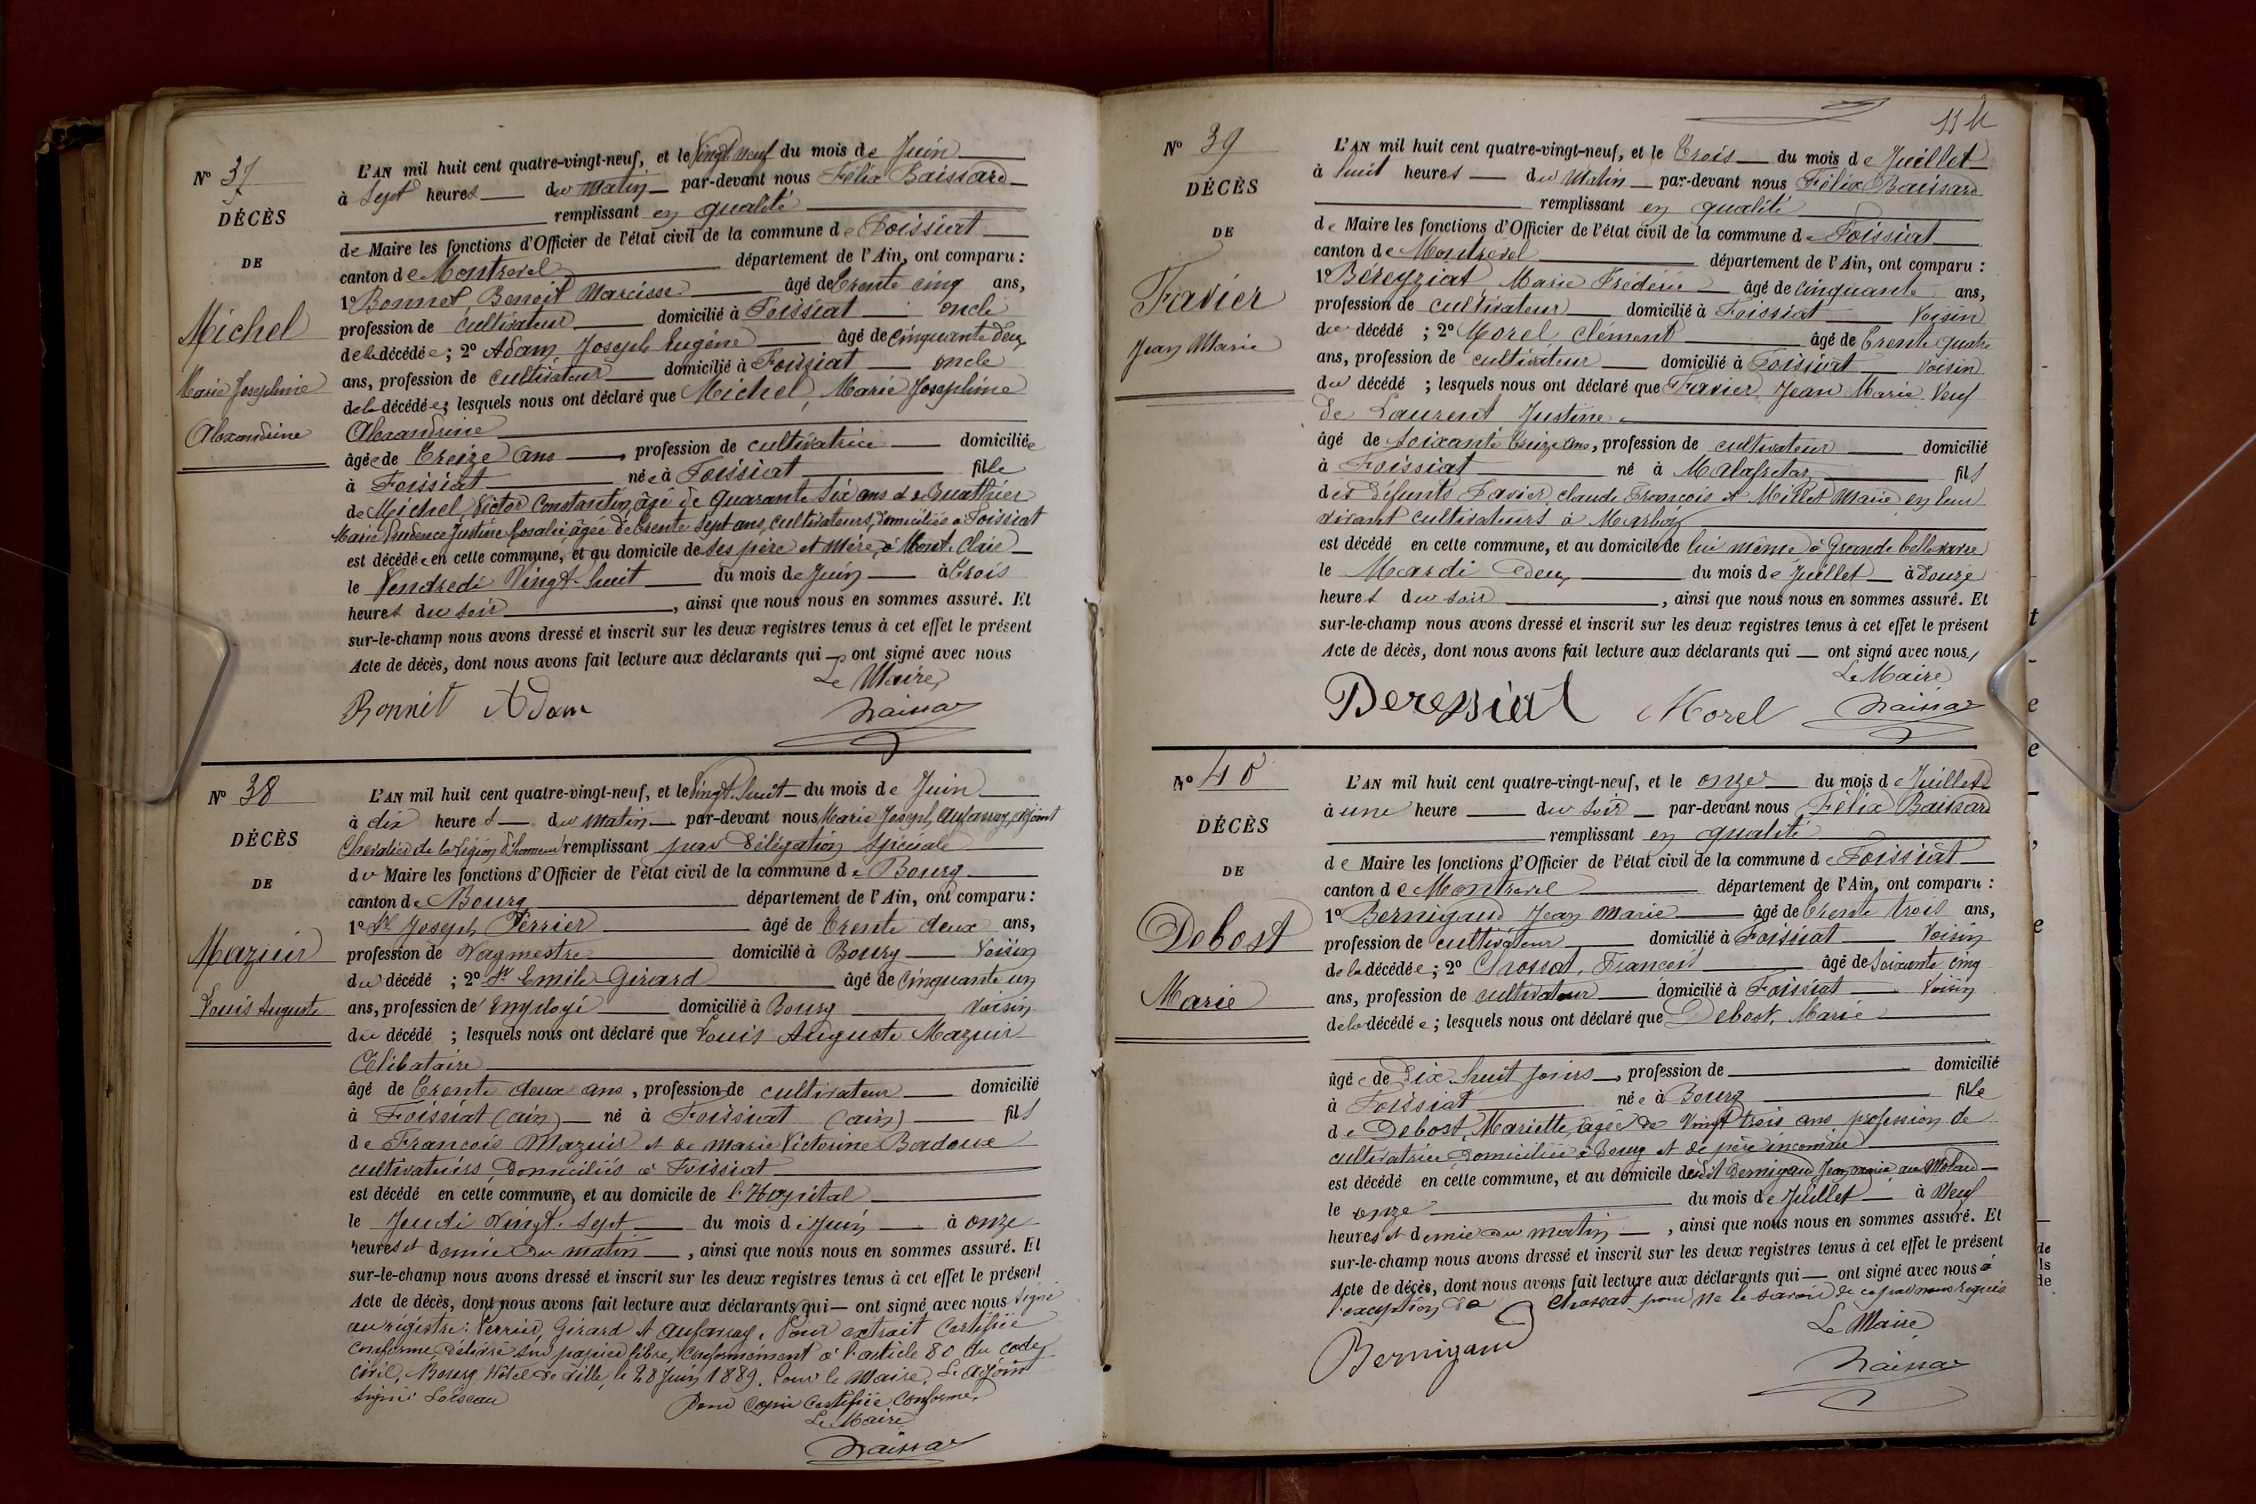 N° 37
DÉCÈS
DE
Michel
Marie Josephine
Alexandrine
L'AN mil huit cent quatre-vingt-neuf, et le Vingt neuf du mois de Juin
à Sept heures du Matin par-devant nous Félix Baissard
remplissant en qualité
de Maire les fonctions d'Officier de l'état civil de la commune de Foissiat
canton de Montrevel département de l'Ain, ont comparu :
1° Bonnet Benoit Narcisse âgé de trente cinq ans,
profession de cultivateur domicilié à Foissiat oncle
de la décédée ; 2° Adam Joseph Eugène âgé de cinquante deux
ans, profession de cultivateur domicilié à Foissiat oncle
de la décédée ; lesquels nous ont déclaré que Michel, Marie Josephine
Alexandrine
âgée de treize ans, profession de cultivatrice domiciliée
à Foissiat née à Foissiat fille
de Michel, Victor Constantin, âgé de quarante six ans et de Buathier
Marie Prudence Justine Rosalie âgée de trente sept ans, cultivateurs, domiciliés à Foissiat
est décédée en cette commune, et au domicile de ses père et mère, à Mont-Clair
le Vendredi Vingt-huit du mois de Juin à trois
heures du soir, ainsi que nous nous en sommes assuré. Et
sur-le-champ nous avons dressé et inscrit sur les deux registres tenus à cet effet le présent
Acte de décès, dont nous avons fait lecture aux déclarants qui ont signé avec nous
Le Maire,
Bonnet Adam Baissard
N° 38
DÉCÈS
DE
Mazuir
Louis Auguste
L'AN mil huit cent quatre-vingt-neuf, et le Vingt-huit du mois de Juin
à dix heures du matin par-devant nous Marie Joseph Aufavray, adjoint
Chevalier de la Légion d'honneur remplissant par délégation spéciale
du Maire les fonctions d'Officier de l'état civil de la commune de Bourg
canton de Bourg département de l'Ain, ont comparu :
1° Sr Joseph Perrier âgé de trente deux ans,
profession de Vagmestre domicilié à Bourg Voisin
du décédé ; 2° Sr Emile Girard âgé de cinquante un
ans, profession d'Employé domicilié à Bourg Voisin
du décédé ; lesquels nous ont déclaré que Louis Auguste Mazuir
Célibataire
âgé de trente deux ans, profession de cultivateur domicilié
à Foissiat (ain) né à Foissiat (ain) fils
de François Mazuir et de Marie Victorine Bordoux
cultivateurs, domiciliés à Foissiat
est décédé en cette commune, et au domicile de l'Hopital
le Jeudi Vingt-sept du mois de Juin à onze
heures et demie du matin, ainsi que nous nous en sommes assuré. Et
sur-le-champ nous avons dressé et inscrit sur les deux registres tenus à cet effet le présent
Acte de décès, dont nous avons fait lecture aux déclarants qui ont signé avec nous Signé
au registre : Perrier, Girard et Aufavray. Pour extrait Certifié
Conforme, délivré sur papier libre, conformément à l'article 80 du code
civil, Bourg, Hôtel de Ville, le 28 Juin 1889. Pour le Maire, L'adjoint
signé : Loiseau Pour Copie Certifiée Conforme,
Le Maire
Baissard
114
N° 39
DÉCÈS
DE
Favier
Jean Marie
L'AN mil huit cent quatre-vingt-neuf, et le trois du mois de Juillet
à huit heures du Matin par-devant nous Félix Baissard
remplissant en qualité
de Maire les fonctions d'Officier de l'état civil de la commune de Foissiat
canton de Montrevel département de l'Ain, ont comparu :
1° Bereyziat, Marie Frédéric âgé de cinquante ans,
profession de cultivateur domicilié à Foissiat Voisin
du décédé ; 2° Morel, Clément âgé de trente quatre
ans, profession de cultivateur domicilié à Foissiat Voisin
du décédé ; lesquels nous ont déclaré que Favier, Jean Marie, Veuf
de Laurent Justine
âgé de soixante treize ans, profession de cultivateur domicilié
à Foissiat né à Malafretaz fils
des défunts Favier, Claude François et Millet Marie, en leur
vivant cultivateurs à Marboz
est décédé en cette commune, et au domicile de lui même à Grande bellevavre
le Mardi deux du mois de Juillet à douze
heures du soir, ainsi que nous nous en sommes assuré. Et
sur-le-champ nous avons dressé et inscrit sur les deux registres tenus à cet effet le présent
Acte de décès, dont nous avons fait lecture aux déclarants qui ont signé avec nous,
Le Maire
Beressiat Morel Baissard
N° 40
DÉCÈS
DE
Debost
Marie
L'AN mil huit cent quatre-vingt-neuf, et le onze du mois de Juillet
à une heure du soir par-devant nous Félix Baissard
remplissant en qualité
de Maire les fonctions d'Officier de l'état civil de la commune de Foissiat
canton de Montrevel département de l'Ain, ont comparu :
1° Bernigaud Jean Marie âgé de trente trois ans,
profession de cultivateur domicilié à Foissiat Voisin
de la décédée ; 2° Chossat, François âgé de soixante cinq
ans, profession de cultivateur domicilié à Foissiat Voisin
de la décédée ; lesquels nous ont déclaré que Debost, Marie
âgée de dix huit jours, profession de domicilié
à Foissiat née à Bourg fille
de Debost, Mariette, âgée de Vingt trois ans profession de
cultivatrice domiciliée à Bourg et de père inconnu
est décédé en cette commune, et au domicile dudit Bernigaud Jean marie au Molard
le onze du mois de Juillet à Neuf
heures et demie du matin, ainsi que nous nous en sommes assuré. Et
sur-le-champ nous avons dressé et inscrit sur les deux registres tenus à cet effet le présent
Acte de décès, dont nous avons fait lecture aux déclarants qui ont signé avec nous à
l'exception de Chossat pour ne le savoir de ce par nous requis
Le Maire
Bernigaud Baissard